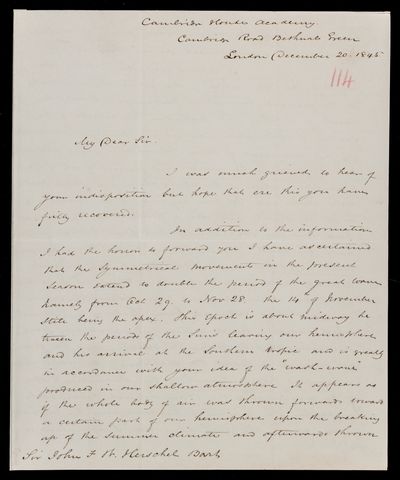 Cambridge House Academy.
Cambridge Road Bethnal Green
London December 20. 1845
114
My Dear Sir.
I was much grieved to hear of
your indisposition but hope that ere this you have
fully recovered.
In addition to the information
I had the honor to forward you I have ascertained
that the Symmetrical movements in the present
Season extend to double the period of the great
namely from Oct 29. to Nov 28. the 14 of November
still being the apex. This Epoch is about midway be
tween the period of the Sun's leaving our hemisphere
and his arrival at the Southern tropic and is greatly
in accordance with your idea of the "wash-wave"
produced in our shallow atmosphere It appears as
if the whole body of air was thrown forwards toward
a certain part of our hemisphere upon the breaking
up of the summer climate and afterwards thrown
Sir John F. W. Herschel Bart